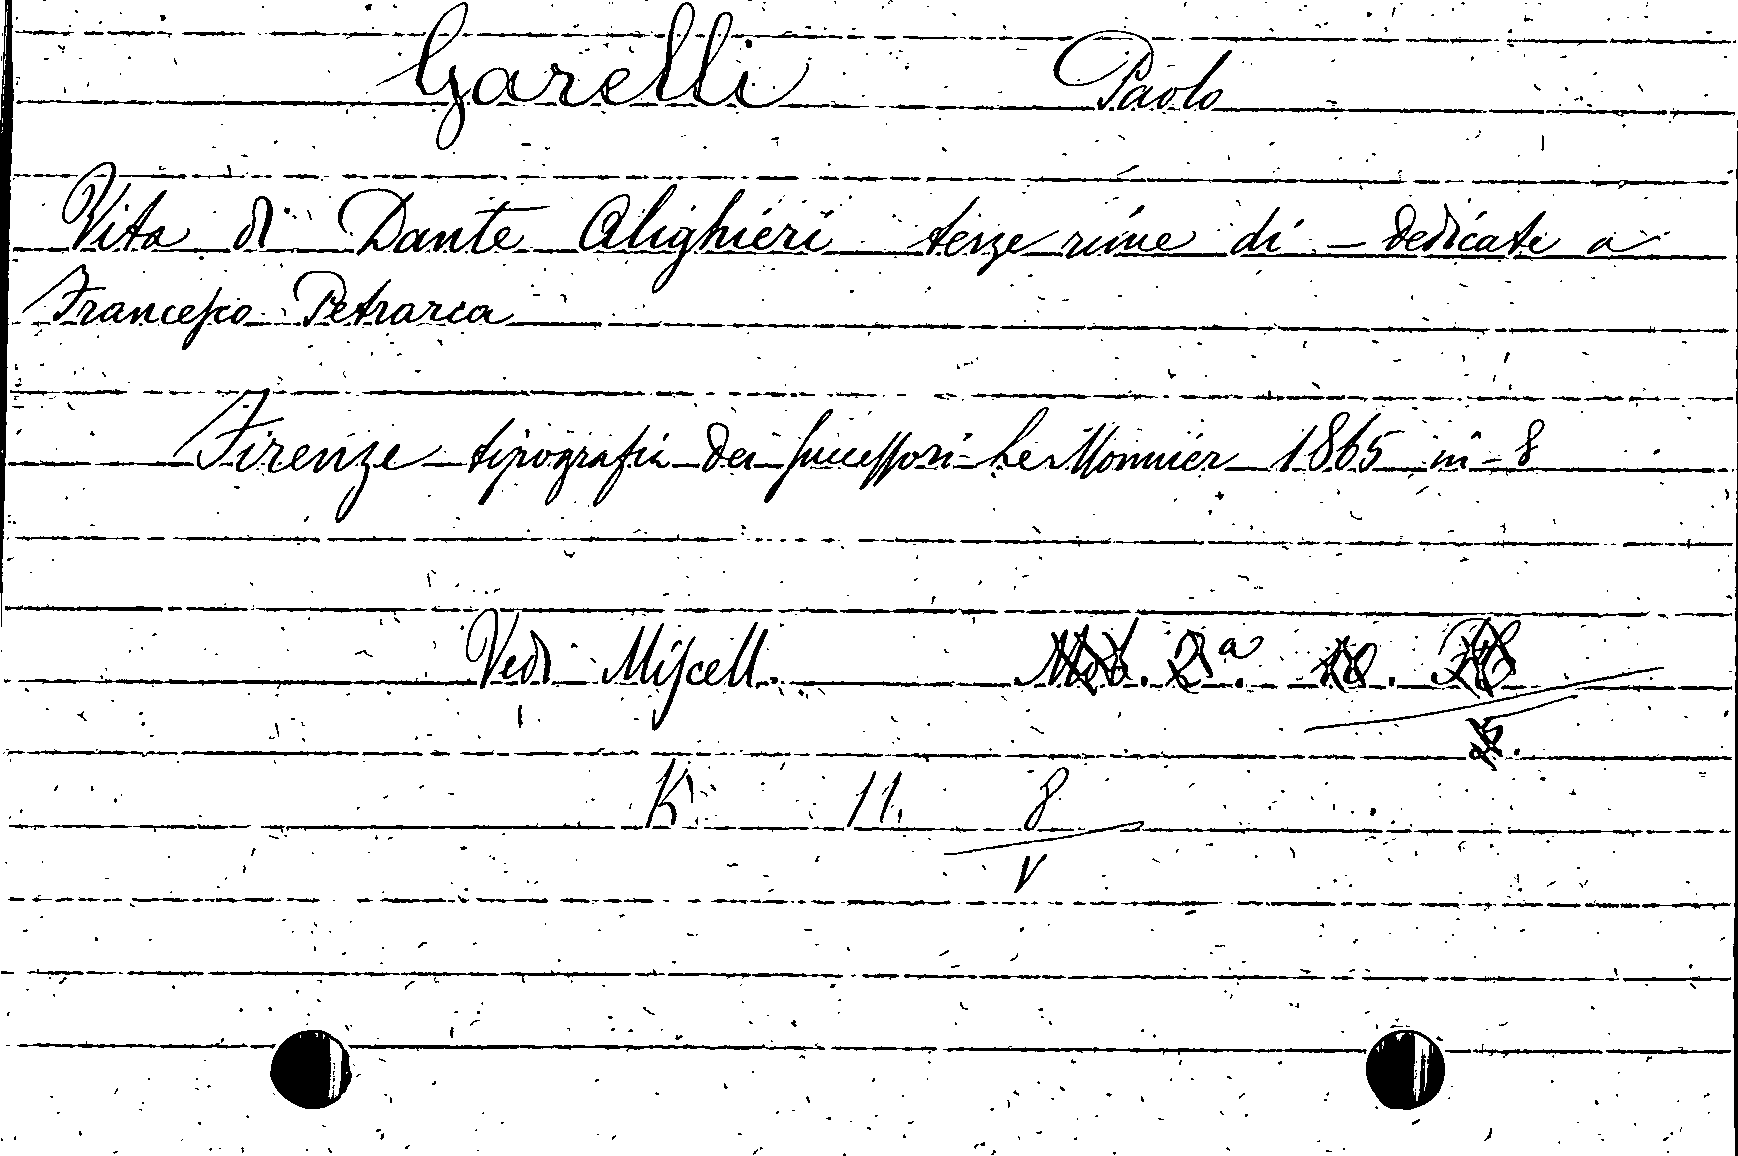 Garelli Paolo
Vita di Dante Alighieri terze rime di - dedicate a
Francesco Petrarca
Firenze tipografia dei successori Le Monnier 1865 in-8
Vedi Miscell. 2ª.
K. 11. 8
V